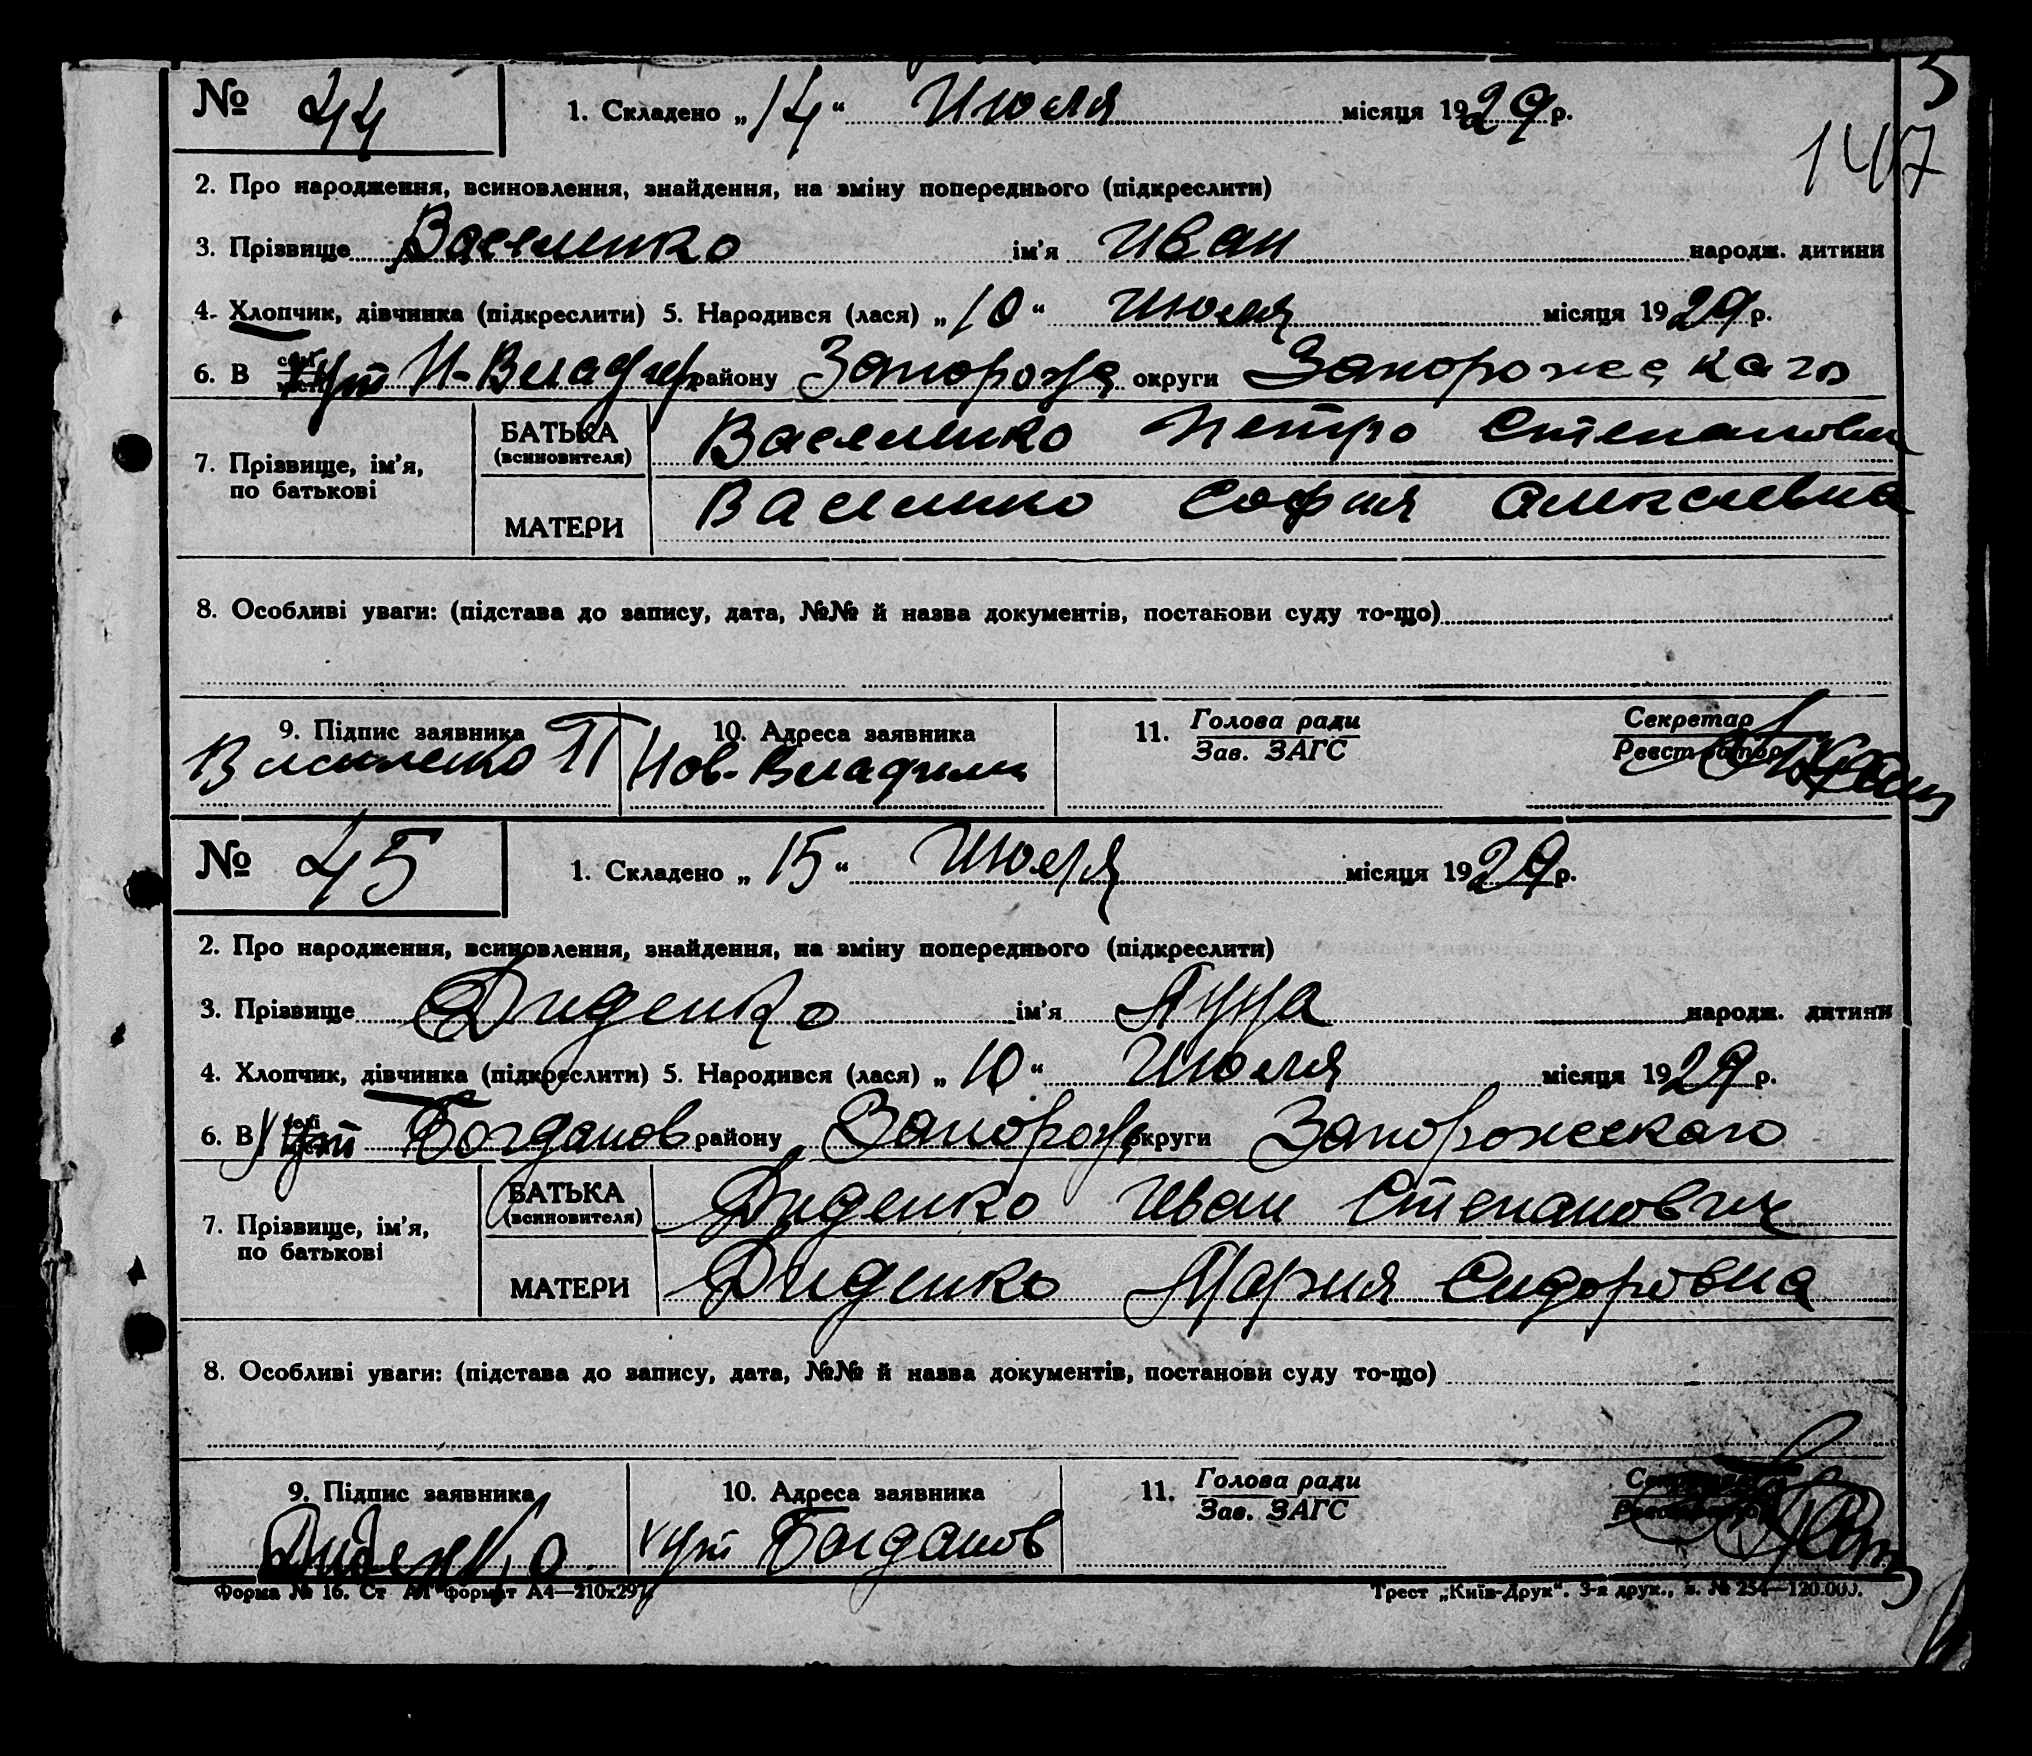 № 44 1. Складено „14“ Июля місяця 1929 р.
147
2. Про народження, всиновлення, знайдення, на зміну попереднього (підкреслити)
3. Прізвище Василенко ім'я Иван народж. дитини
4. Хлопчик, дівчинка (підкреслити) 5. Народився (лася) „10“ Июля місяця 1929 р.
6. В хут Н-Владимр району Запорож округи Запорожскаго
7. Прізвище, ім'я, по батькові
БАТЬКА (всиновителя) Василенко Петро Степанович
МАТЕРИ Василенко София Алексеевна
8. Особливі уваги: (підстава до запису, дата, №№ й назва документів, постанови суду то-що)
9. Підпис заявника 10. Адреса заявника 11. Голова ради Секретар
Зав. ЗАГС Реєстратор
Василенко П Нов-Владими
№ 45 1. Складено „15“ Июля місяця 1929 р.
2. Про народження, всиновлення, знайдення, на зміну попереднього (підкреслити)
3. Прізвище Диденко ім'я народж. дитини
4. Хлопчик, дівчинка (підкреслити) 5. Народився (лася) „10“ Июля місяця 1929 р.
6. В хут Богданов району Запорож округи Запорожскаго
7. Прізвище, ім'я, по батькові
БАТЬКА (всиновителя) Диденко Иван Степанович
МАТЕРИ Диденко Мария Сидоровна
8. Особливі уваги: (підстава до запису, дата, №№ й назва документів, постанови суду то-що)
9. Підпис заявника 10. Адреса заявника 11. Голова ради
Зав. ЗАГС
Диденко хут Богданов
Форма № 16. Ст АЛ формат А4—210х297 Трест „Київ-Друк“. 3-я друк., з. № 254—120.000.